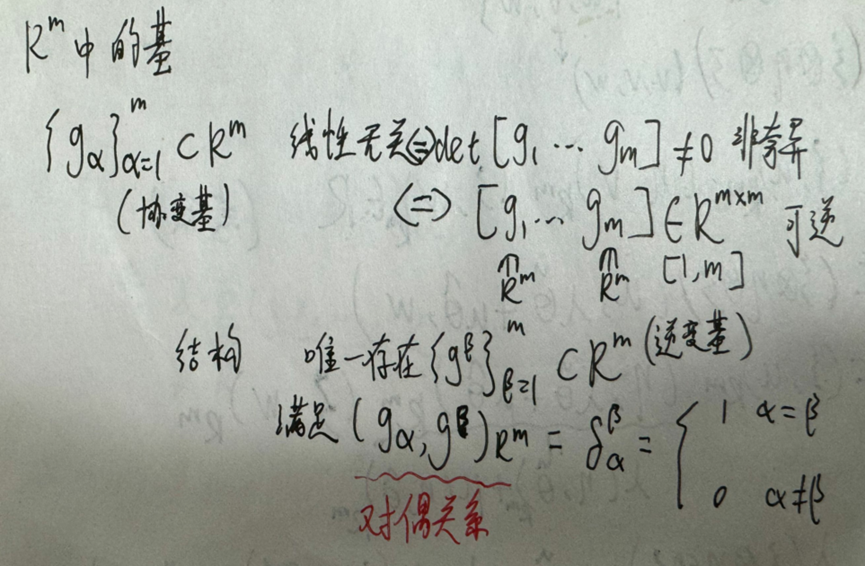 R^m 中的基
{g_α}_{α=1}^m ⊂ R^m 线性无关 ⇔ det [g_1 ⋯ g_m] ≠ 0 非奇异
(协变基) ⇔ [g_1 ⋯ g_m] ∈ R^{m×m} 可逆
∩ ∩ [1,m]
R^m R^m
结构 唯一存在 {g^β}_{β=1}^m ⊂ R^m (逆变基)
满足 (g_α, g^β)_{R^m} = δ_α^β = { 1 α=β
0 α≠β
对偶关系